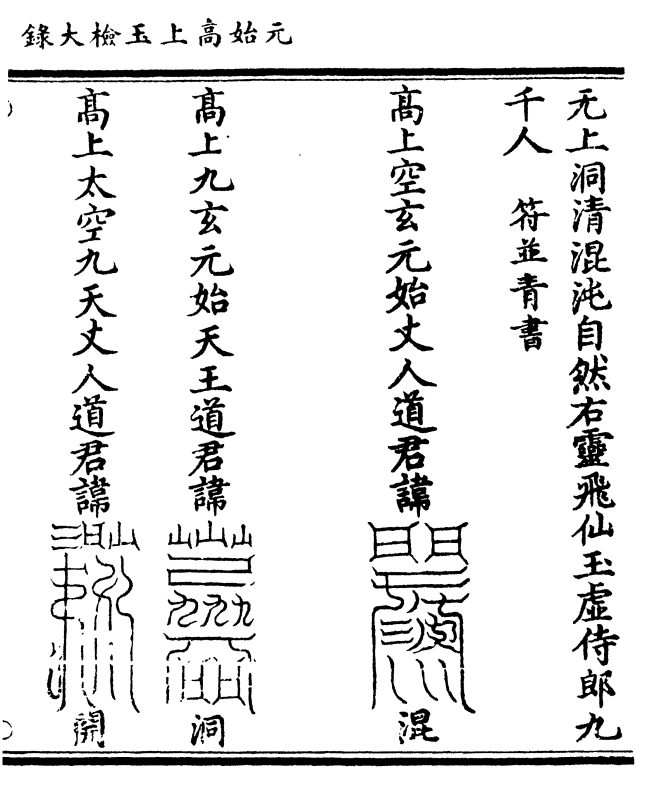 元始高上玉檢大錄
无上洞清混沌自然右靈飛仙玉虛侍郎九
千人　符並青書
高上空玄元始丈人道君諱
混
高上九玄元始天王道君諱
洞
高上太空九天丈人道君諱
開